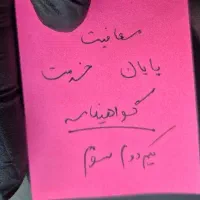 معافیت
پایان خدمت
گواهینامه
یکم دوم سوم